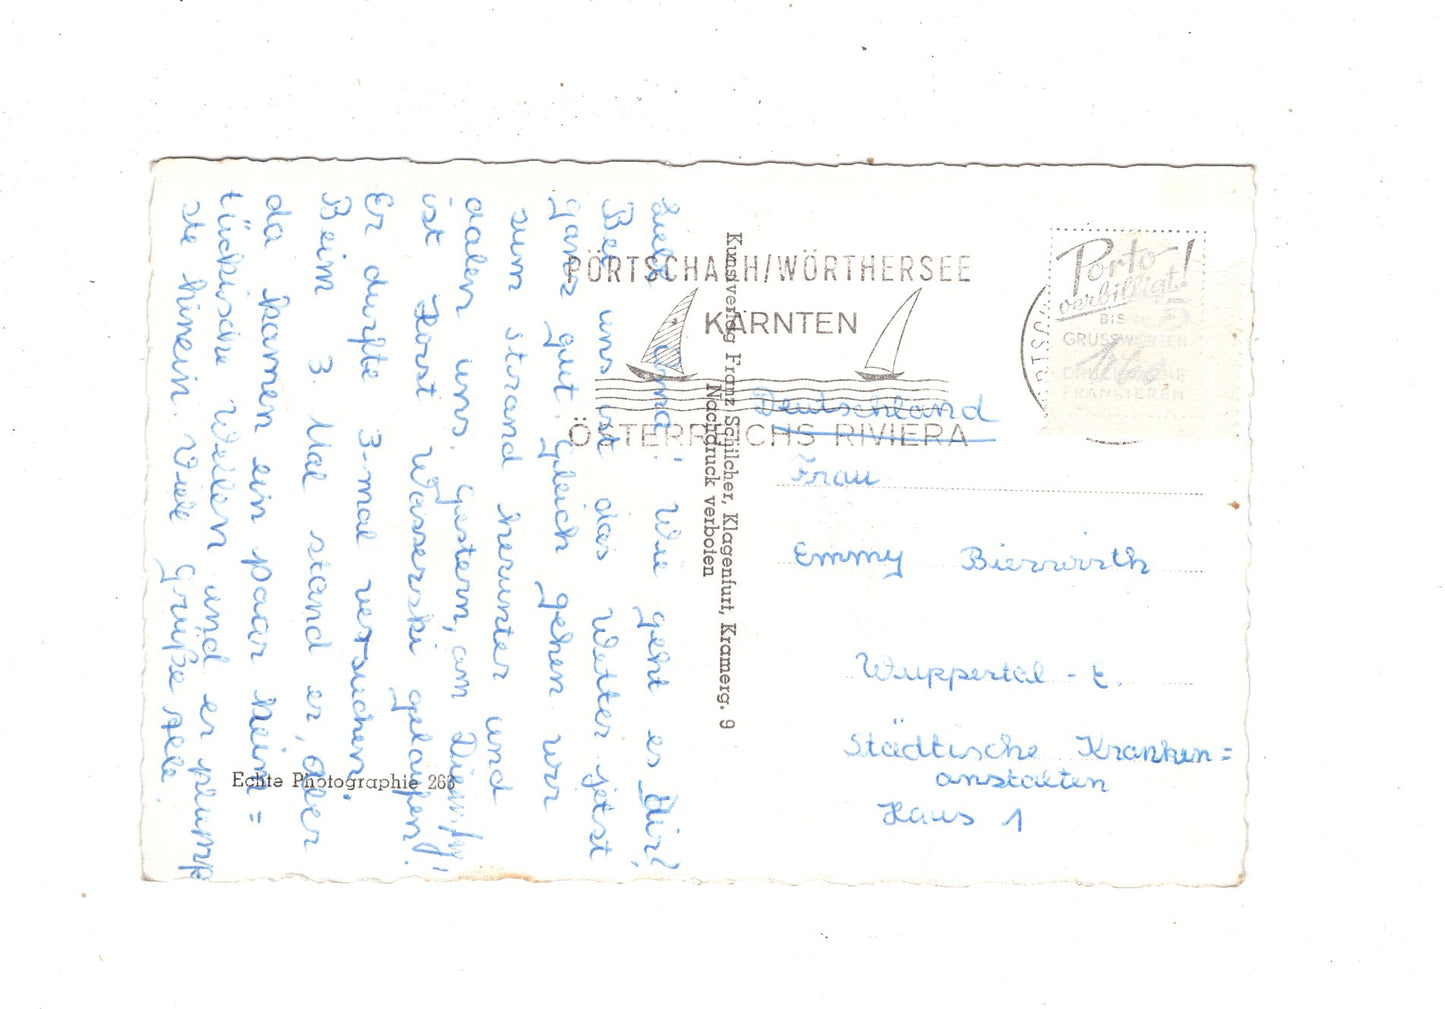 Liebe Oma! Wie geht es Dir?
Bei uns ist das Wetter jetzt
ganz gut. Gleich gehen wir
zum Strand herunter und
aalen uns. Gestern, am
ist Horst Wasserski gelaufen.
Er durfte 3-mal versuchen.
Beim 3. Mal stand er, aber
da kamen ein paar kein=
tückische Wellen und er plump
ste hinein. Viele Grüße alle.
Echte Photographie 263
Kunstverlag Franz Schilcher, Klagenfurt, Kramerg. 9
Nachdruck verboten
PÖRTSCHACH/WÖRTHERSEE
KÄRNTEN
ÖSTERREICHS RIVIERA
Porto
verbilligt!
BIS 5
GRUSSWORTEN
DRUCKSACHE
FRANKIEREN
Deutschland
Frau
Emmy Bierwirth
Wuppertal - E.
Städtische Kranken=
anstalten
Haus 1